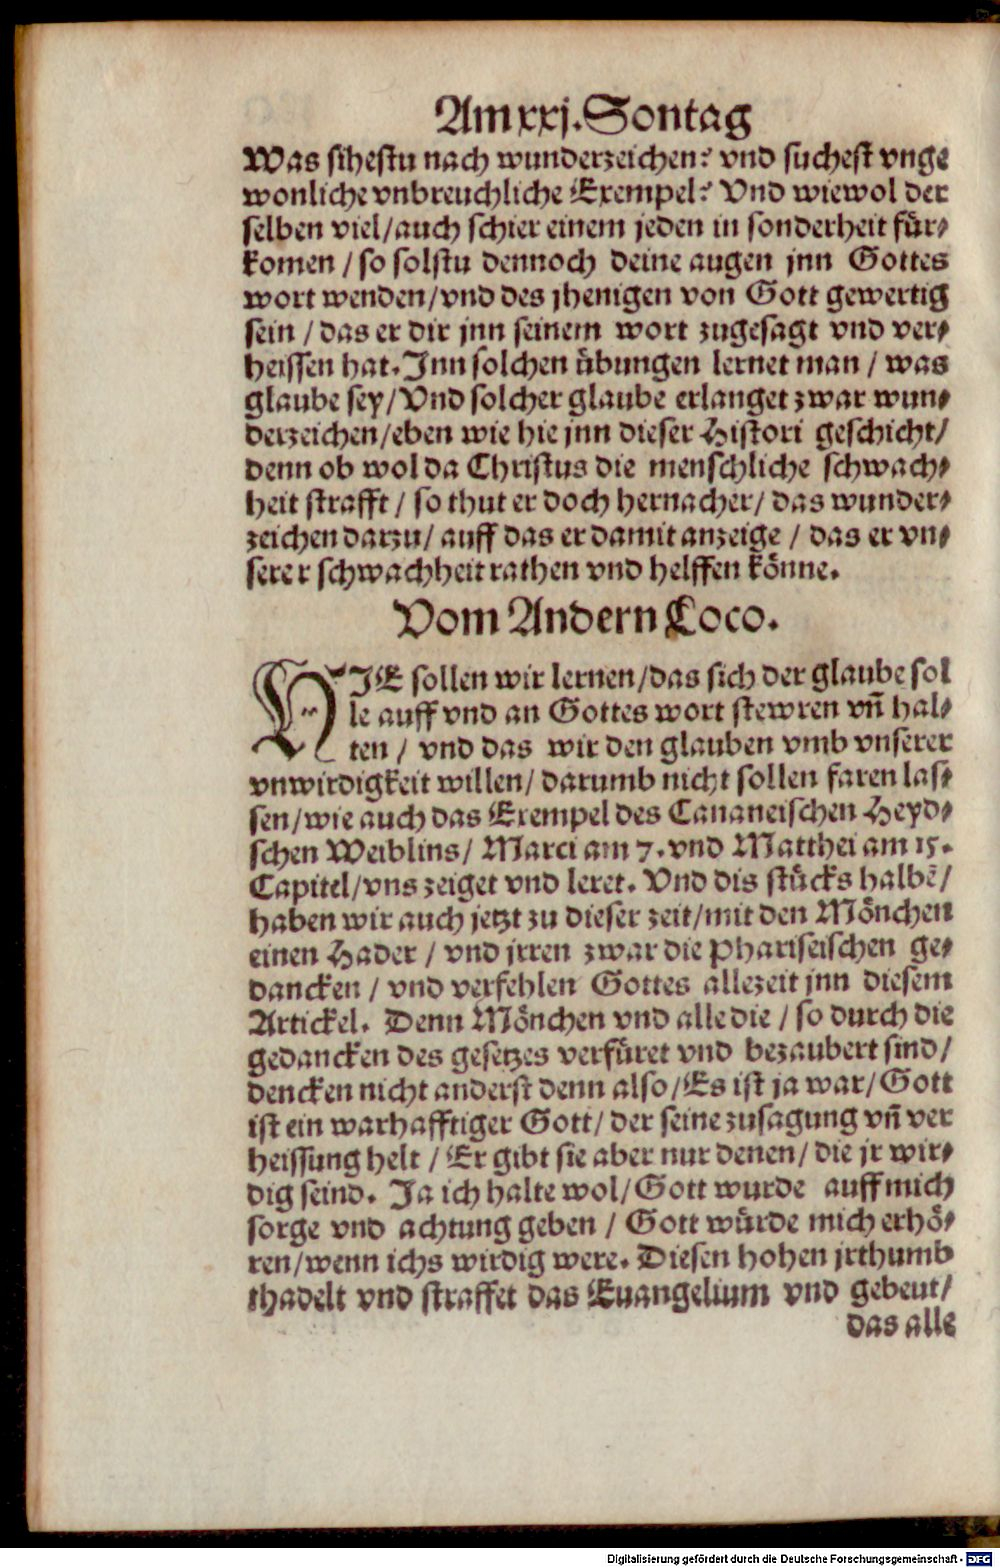 Am xxj. Sontag
Was sihestu nach wunderzeichen? vnd suchest vnge
wonliche vnbreuchliche Exempel? Vnd wiewol der
selben viel/auch schier einem jeden in sonderheit für⸗
komen / so solstu dennoch deine augen jnn Gottes
wort wenden/vnd des jhenigen von Gott gewertig
sein / das er dir jnn seinem wort zugesagt vnd ver⸗
heissen hat. Jnn solchen übungen lernet man / was
glaube sey/Vnd solcher glaube erlanget zwar wun⸗
derzeichen/eben wie hie jnn dieser Histori geschicht/
denn ob wol da Christus die menschliche schwach⸗
heit strafft / so thut er doch hernacher/ das wunder⸗
zeichen darzu/ auff das er damit anzeige / das er vn⸗
serer schwachheit rathen vnd helffen könne.
Vom Andern Loco.
HJE sollen wir lernen/das sich der glaube sol
le auff vnd an Gottes wort stewren vñ hal⸗
ten / vnd das wir den glauben vmb vnserer
vnwirdigkeit willen/ darumb nicht sollen faren las⸗
sen/wie auch das Exempel des Cananeischen Heyd⸗
schen Weiblins/ Marci am 7. vnd Matthei am 15.
Capitel/vns zeiget vnd leret. Vnd dis stücks halbē/
haben wir auch jetzt zu dieser zeit/mit den Mönchen
einen Hader / vnd jrren zwar die Phariseischen ge⸗
dancken / vnd verfehlen Gottes allezeit jnn diesem
Artickel. Denn Mönchen vnd alle die / so durch die
gedancken des gesetzes verfüret vnd bezaubert sind/
dencken nicht anderst denn also/Es ist ja war/Gott
ist ein warhafftiger Gott/ der seine zusagung vñ ver
heissung helt / Er gibt sie aber nur denen/ die jr wir⸗
dig seind. Ja ich halte wol/Gott wurde auff mich
sorge vnd achtung geben / Gott würde mich erhö⸗
ren/wenn ichs wirdig were. Diesen hohen jrthumb
thadelt vnd straffet das Euangelium vnd gebeut/
das alle
Digitalisierung gefördert durch die Deutsche Forschungsgemeinschaft - DFG